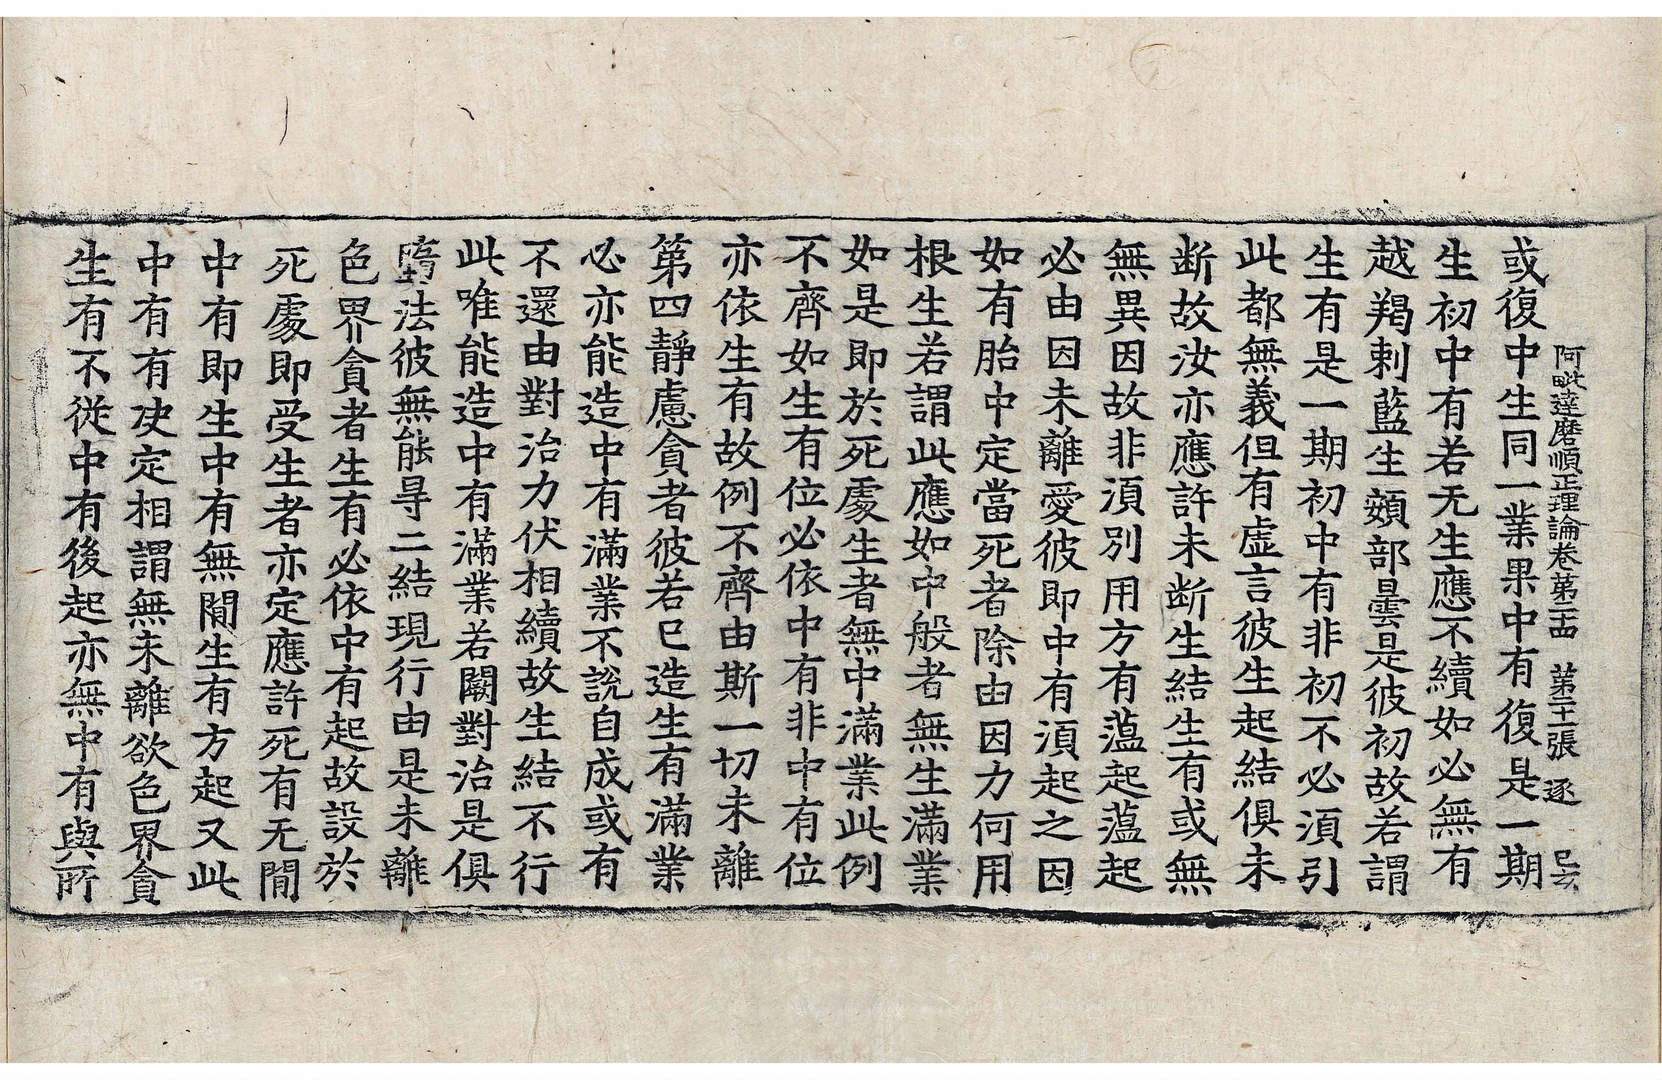 阿毗達磨順正理論卷第二十四　第二十張　逐
或復中生同一業果中有復是一期
生初中有若无生應不續如必無有
越羯剌藍生頞部曇是彼初故若謂
生有是一期初中有非初不必湏引
此都無義但有虛言彼生起結俱未
断故汝亦應許未断生結生有或無
無異因故非湏別用方有薀起薀起
必由因未離愛彼即中有湏起之因
如有胎中定當死者除由因力何用
根生若謂此應如中般者無生滿業
如是即於死處生者無中滿業此例
不齊如生有位必依中有非中有位
亦依生有故例不齊由斯一切未離
第四靜慮貪者彼若已造生有滿業
必亦能造中有滿業不說自成或有
不還由對治力伏相續故生結不行
此唯能造中有滿業若闕對治是俱
墮法彼無能㝵二結現行由是未離
色界貪者生有必依中有起故設於
死處即受生者亦定應許死有无閒
中有即生中有無閒生有方起又此
中有有决定相謂無未離欲色界貪
生有不從中有後起亦無中有與所